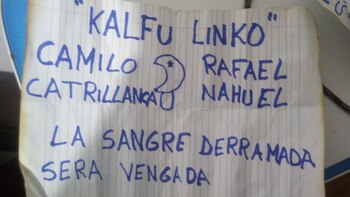 "KALFU LINKO"
CAMILO RAFAEL
CATRILLANCA NAHUEL
LA SANGRE DERRAMADA
SERA VENGADA